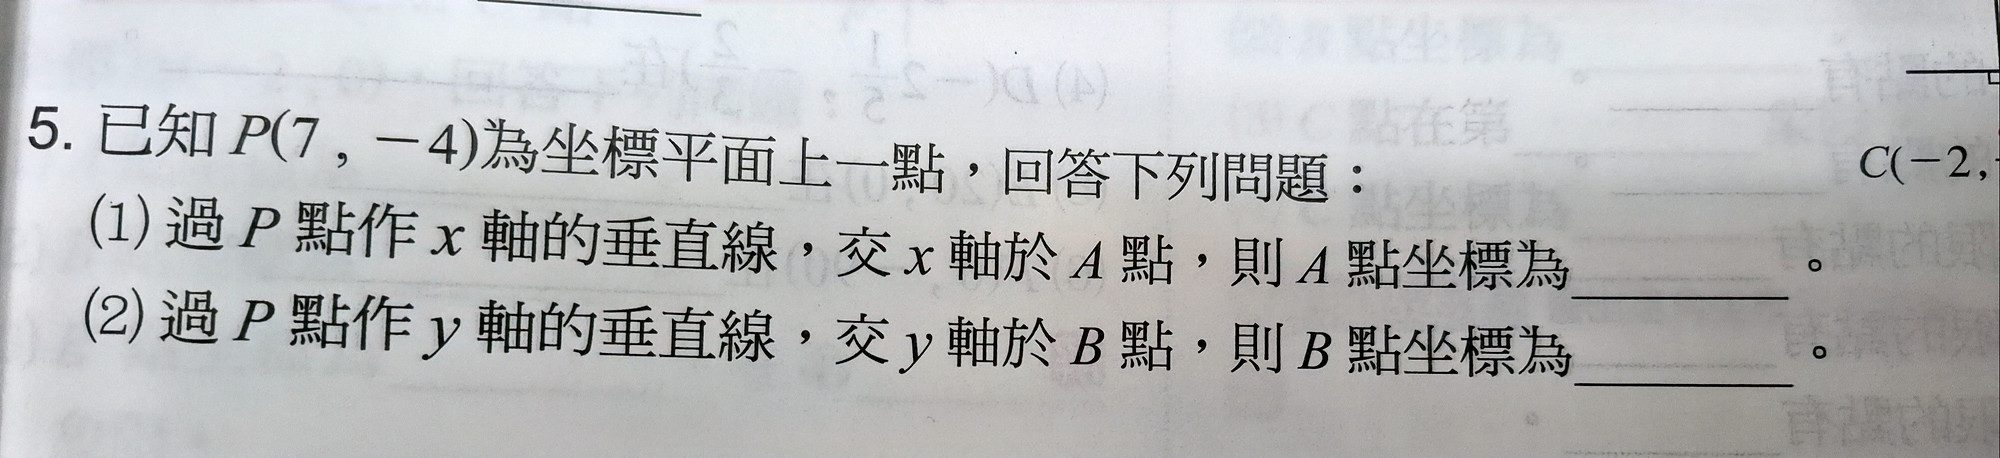 5. 已知 P(7 , －4)為坐標平面上一點，回答下列問題：
C(－2,
(1) 過 P 點作 x 軸的垂直線，交 x 軸於 A 點，則 A 點坐標為________。
(2) 過 P 點作 y 軸的垂直線，交 y 軸於 B 點，則 B 點坐標為________。